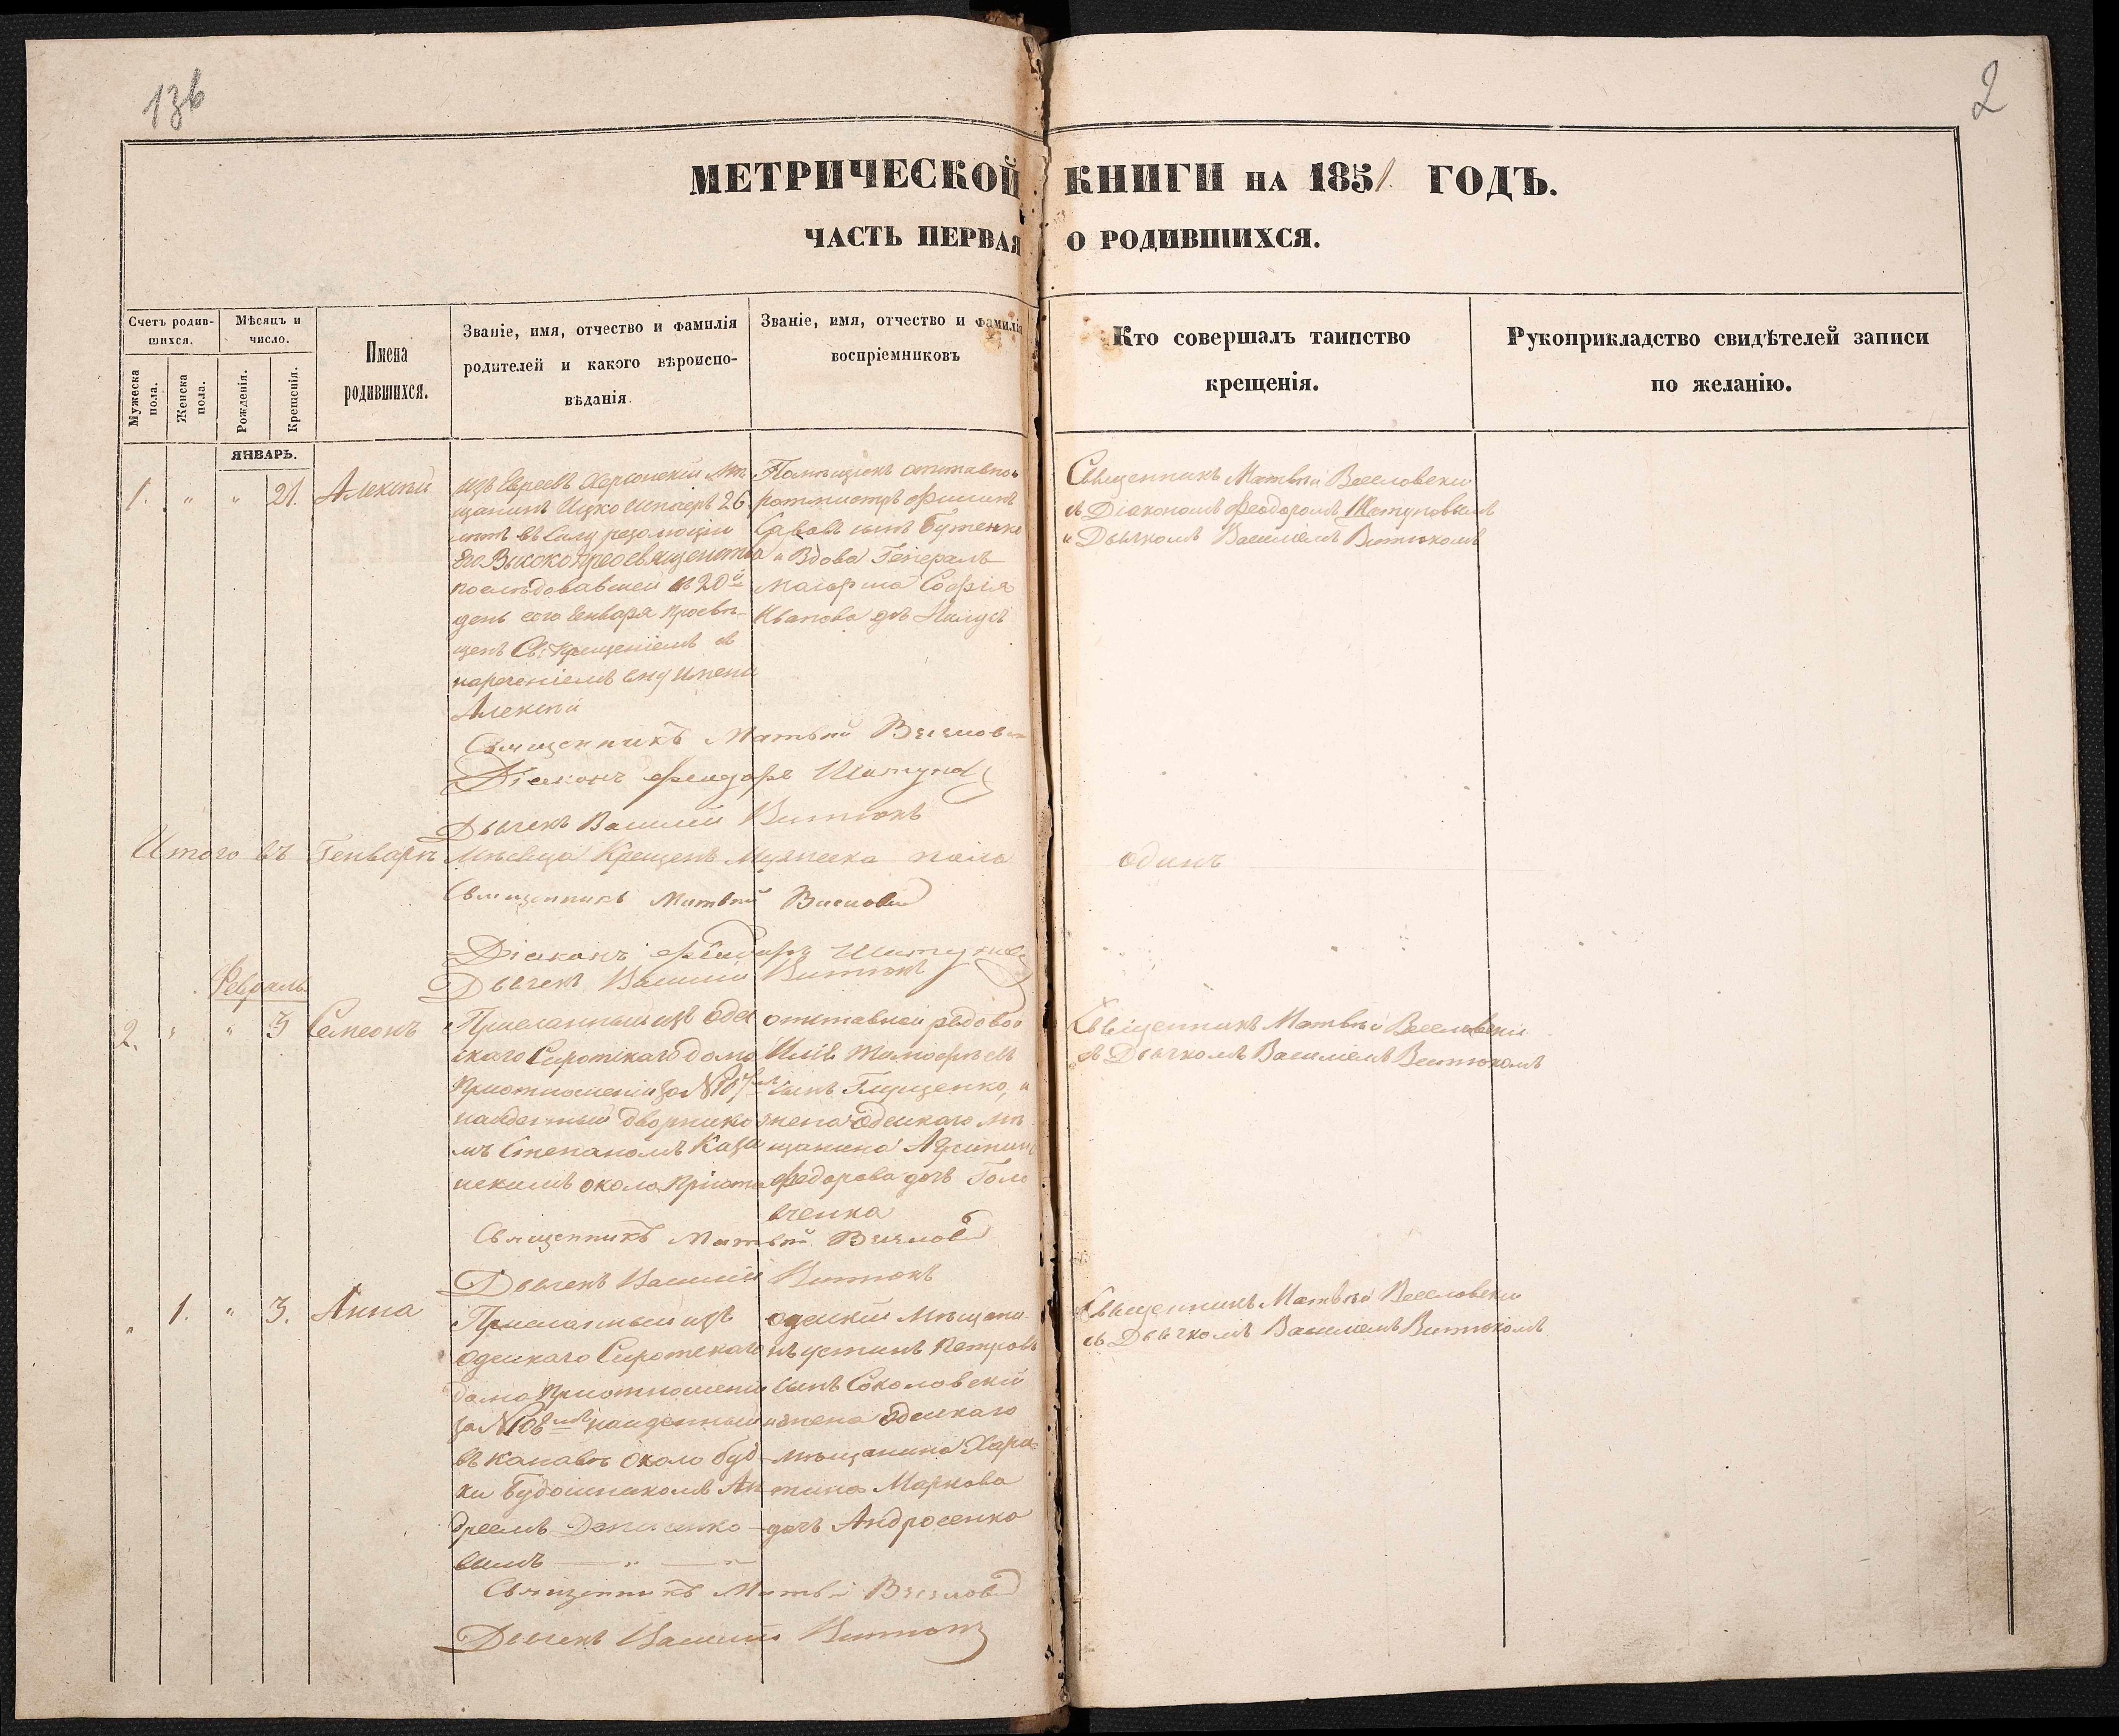 136
2
МЕТРИЧЕСКОЙ КНИГИ НА 1851. ГОДЪ.
ЧАСТЬ ПЕРВАЯ О РОДИВШИХСЯ.
Счетъ родив-
шихся.
Мужеска пола.
Женска пола.
Мѣсяцъ и
число.
Рожденія.
Крещенія.
Имена
родившихся.
Званіе, имя, отчество и фамилія
родителей и какого вѣроиспо-
вѣданія.
Званіе, имя, отчество и фамилія
воспріемниковъ
Кто совершалъ таинство
крещенія.
Рукоприкладство свидѣтелей записи
по желанію.
ЯНВАРЬ.
1. " " 21. Алексій
изъ Евреевъ Херсонскій Мѣ-
щанинъ Ицко 26
лѣтъ въ Силу резолюціи
Его Высокопреосвященства
послѣдовавшей въ 20й
день сего Генваря просвѣ-
щенъ Св: Крещеніемъ съ
нареченіемъ ему имени
Алексій
Помѣщикъ отставно
ротмистръ Филипъ
Саввовъ сынъ Бутенко
и Вдова Генералъ
маіорша Софія
Иванова дочь Нилусъ
Священникъ Матвѣй Веселовски
съ Діакономъ Феодоромъ Шатуновымъ
и Дьячкомъ Василіемъ Витюкомъ
Священникъ Матвѣй Веселовски
Діаконъ Феодоръ Шатуновъ
Дьячекъ Василій Витюкъ
Итого въ Генварѣ Мѣсяцѣ Крещенъ Мужеска пола одинъ
Священникъ Матвѣй Веселовски
Діаконъ Феодоръ Шатуновъ
Дьячекъ Василій Витюкъ
Февраль
2. " " 3 Симеонъ
Присланный изъ Одес
скаго Сиротскаго дома
при отношеніи за № 107
найденный дворнико
мъ Степаномъ
около Пріюта
отставной рядовой
Илія Тимофѣевъ
сынъ Глущенко, и
жена Одескаго мѣ
щанина
Федорова дочь Голо
вченка
Священникъ Матвѣй Веселовски
съ Дьячкомъ Василіемъ Витюкомъ
Священникъ Матвѣй Веселовски
Дьячекъ Василій Витюкъ
" 1. " 3. Анна
Присланный изъ
Одескаго Сиротскаго
дома при отношеніи
за № 108 найденный
въ канавѣ около буд
ки Будошникомъ Ан
дреемъ Денисенко
вымъ
Одескій Мѣщани
нъ Устинъ Петровъ
сынъ Соколовскій
и жена Одескаго
мѣщанина Хари
тина Маркова
дочь Андросенко
Священникъ Матвѣй Веселовски
съ Дьячкомъ Василіемъ Витюкомъ
Священникъ Матвѣй Веселовски
Дьячекъ Василій Витюкъ